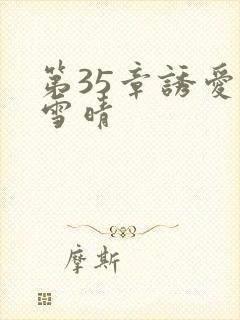 第35章誘愛
雪晴
摩斯